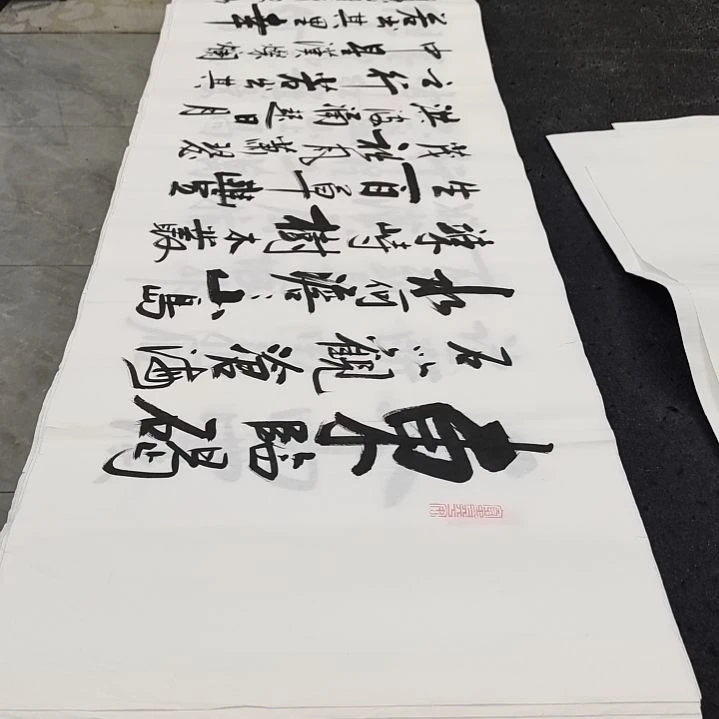 東臨碣
石以觀滄海
水何澹々山島
竦峙樹木叢
生百草豐
茂秋風蕭瑟
洪波涌起日月
之行若出其
中星漢燦爛
若出其里幸